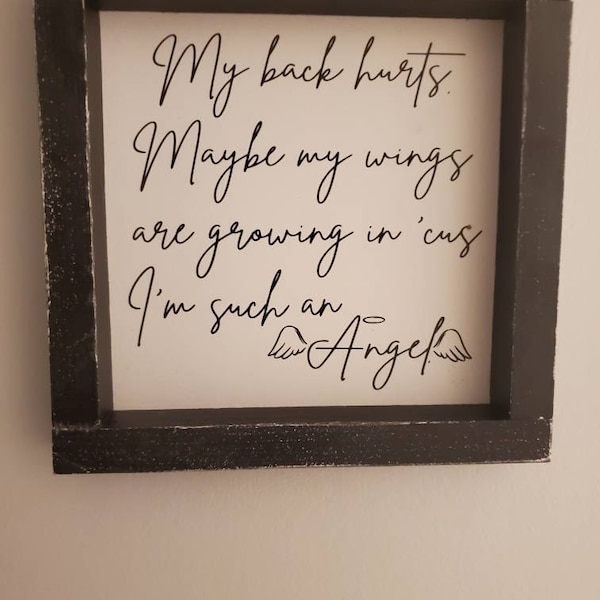 My back hurts.
Maybe my wings
are growing in 'cus
I'm such an
Angel.